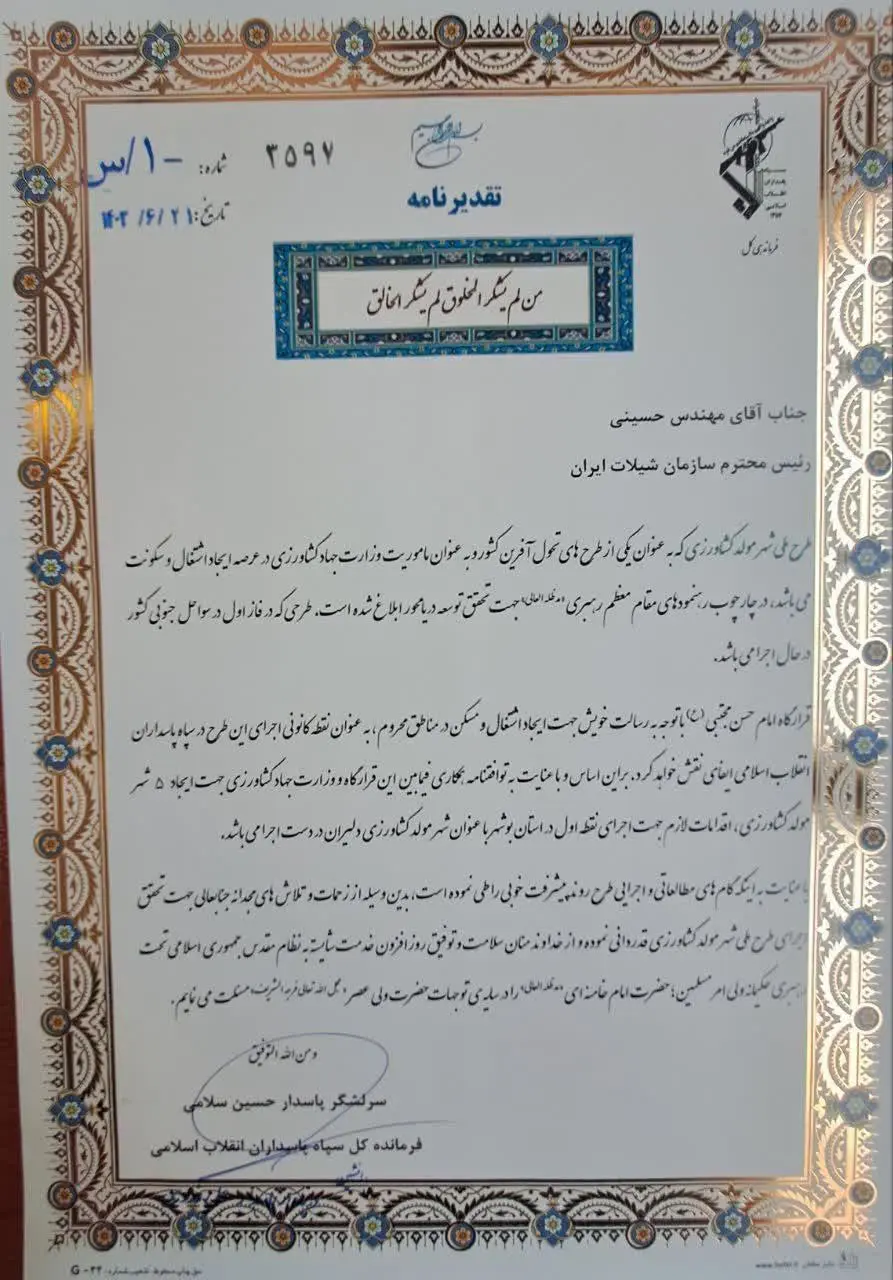 بسم الله الرحمن الرحیم
شماره: ۳۵۹۷ -۱۰/س
تقدیرنامه
تاریخ: ۱۴۰۳/۶/۲۱
فرماندهی کل
من لم یشکر المخلوق لم یشکر الخالق
جناب آقای مهندس حسینی
رئیس محترم سازمان شیلات ایران
طرح ملی شهر مولد کشاورزی که به عنوان یکی از طرح های تحول آفرین کشور و به عنوان ماموریت وزارت جهاد کشاورزی در عرصه ایجاد اشتغال و سکونت
می باشد، در چارچوب رهنمودهای مقام معظم رهبری «مدظله العالی» جهت تحقق توسعه دریامحور ابلاغ شده است. طرحی که در فاز اول در سواحل جنوبی کشور
در حال اجرا می باشد.
قرارگاه امام حسن مجتبی (ع) با توجه به رسالت خویش جهت ایجاد اشتغال و مسکن در مناطق محروم، به عنوان نقطه کانونی اجرای این طرح در سپاه پاسداران
انقلاب اسلامی ایفای نقش خواهد کرد. براین اساس و با عنایت به توافقنامه همکاری فیمابین این قرارگاه و وزارت جهاد کشاورزی جهت ایجاد ۵ شهر
مولد کشاورزی، اقدامات لازم جهت اجرای نقطه اول در استان بوشهر با عنوان شهر مولد کشاورزی دلیران در دست اجرا می باشد.
با عنایت به اینکه گام های مطالعاتی و اجرایی طرح روند پیشرفت خوبی را طی نموده است، بدین وسیله از زحمات و تلاش های مجدانه جنابعالی جهت تحقق
اجرای طرح ملی شهر مولد کشاورزی قدردانی نموده و از خداوند منان سلامت و توفیق روز افزون خدمت شایسته به نظام مقدس جمهوری اسلامی تحت
رهبری حکیمانه ولی امر مسلمین؛ حضرت امام خامنه ای «مدظله العالی» را در سایه ی توجهات حضرت ولی عصر «عجل الله تعالی فرجه الشریف» مسئلت می نمایم.
و من الله التوفیق
سرلشگر پاسدار حسین سلامی
فرمانده کل سپاه پاسداران انقلاب اسلامی
G - ۴۴